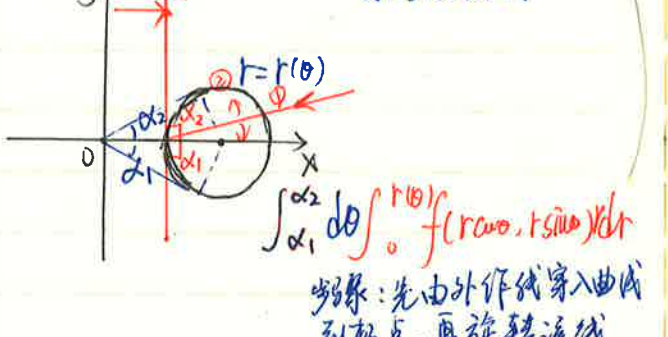 ② r=r(θ)
φ
α₂ α₂
0 α₁ α₁ X
∫_{α₁}^{α₂} dθ ∫_0^{r(θ)} f(rcosθ, rsinθ)rdr
步骤:先由外作线穿入曲线
到极点,再旋转该线